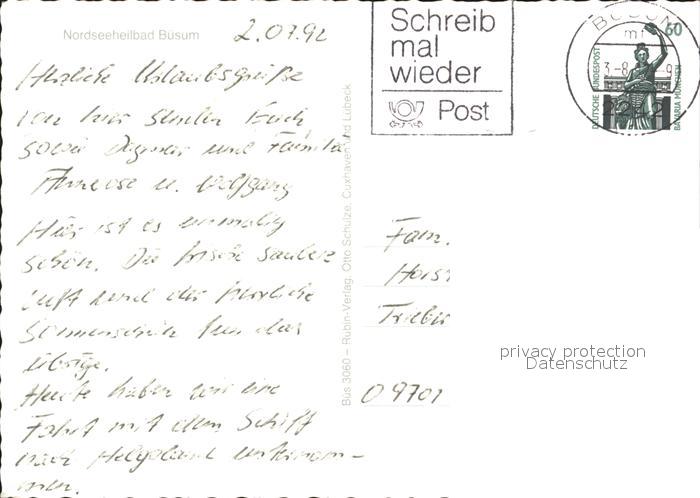 Nordseeheilbad Büsum
2.07.92
Herzliche Urlaubsgrüße
von hier senden Euch
sowie Dagmar und Familie
Annerose u. Wolfgang
Hier ist es einmalig
schön. Die frische saubere
Luft und der herrliche
Sonnenschein tun das
übrige.
Heute haben wir eine
Fahrt mit dem Schiff
nach Helgoland unternom-
men.
Büs 3060 – Rubin-Verlag, Otto Schulze, Cuxhaven und Lübeck
Schreib
mal
wieder
Post
BÜSUM
60
DEUTSCHE BUNDESPOST
BAVARIA MÜNCHEN
Fam.
Horst
O 9701
privacy protection
Datenschutz